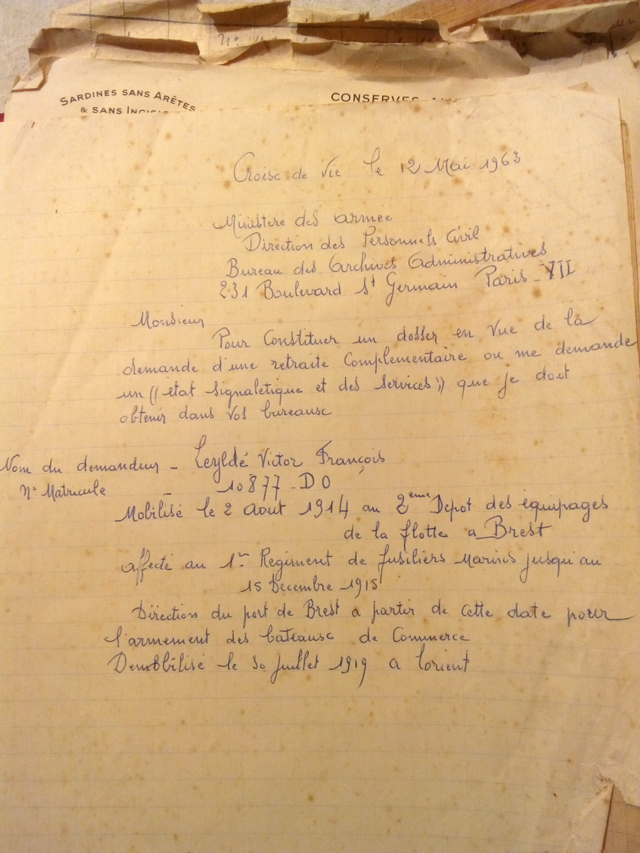 SARDINES SANS ARÊTES
& SANS
CONSERVES
Croise de Vie le 12 Mai 1963
Ministere des armée
Direction des Personnels Civil
Bureau des Archives Administratives
231 Boulevard St Germain Paris - VII
Monsieur
Pour Constituer un dosser en vue de la
demande d'une retraite Complementaire on me demande
un ((etat signaletique et des services)) que je doit
obtenir dans vos bureause
Nom du demandeur - Leyldé Victor François
N° Matricule - 10877-DO
Mobilisé le 2 Aout 1914 au 2eme Depot des équipages
de la flotte a Brest
affecté au 1er Regiment de fusiliers Marins jusqu'au
15 Decembre 1915
Direction du port de Brest a partir de cette date pour
l'armement des bateause de Commerce
Demobbilisé le 30 juillet 1919 a lorient